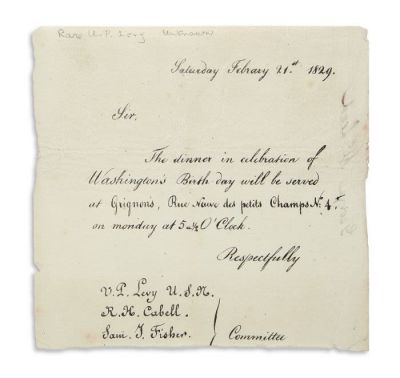 Rare U.P. Levy Unknown
Saturday Febrary 21st 1829.
Sir.
The dinner in celebration of
Washington's Birth-day will be served
at Grignons, Rue Neuve des petits Champs No. 4
on monday at 5 O'Clock.
Respectfully
U. P. Levy U.S.N.
R. H. Cabell.
Sam. J. Fisher.
Committee